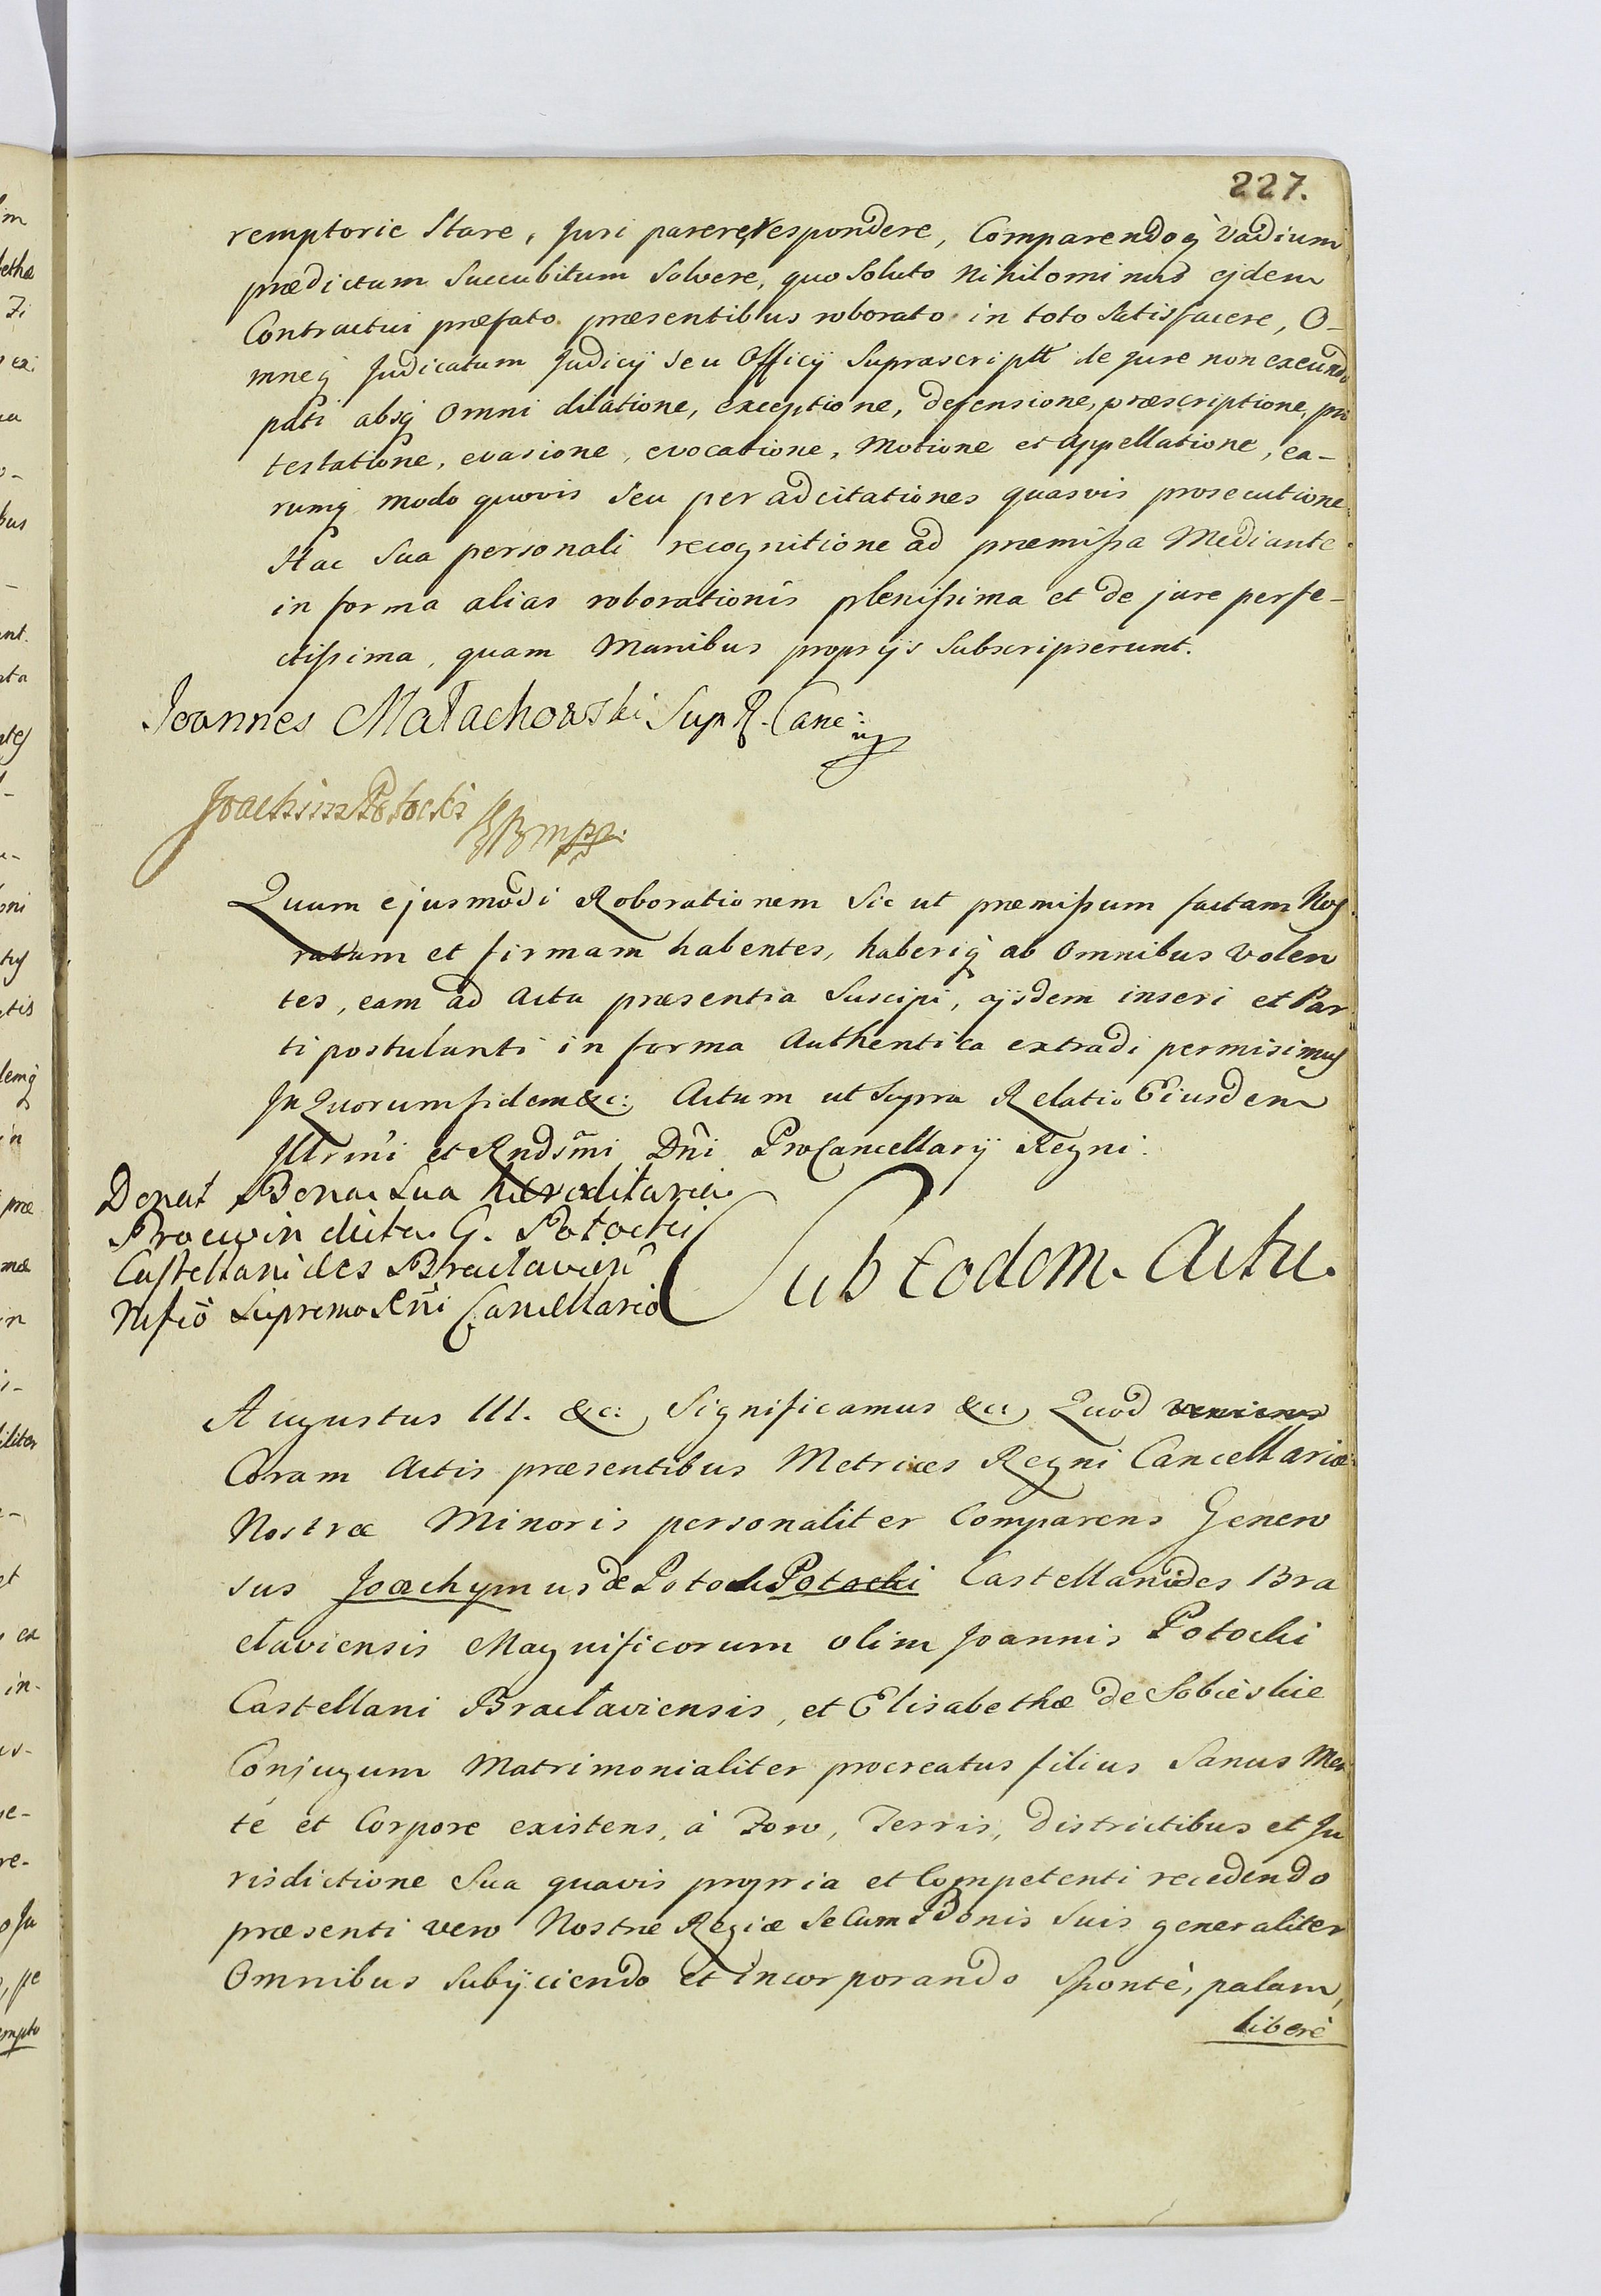 227.
remptorie Stare, Juri parere, respondere, Comparendoq̀ Vadium
prædictum Succubitum Solvere, quo Soluto Nihilominus ejdem
Contractui præfato præsentibus roborato in toto Satisfacere, O-
mneq́ Judicatum Judicÿ Seu Officÿ Suprascriptt de Jure non exeundo
pati absq́ Omni dilatione, exceptione, defensione, præscriptione, pro
testatione, evasione, evocatione, Motione et Appellatione, ea-
rumq́ modo quovis Seu per adcitationes quasvis prosecutione.
Hac Sua personali recognitione ad præmissa Mediante
in forma alias roborationis plenissima et de jure perfe-
ctissima, quam Manibus proprÿs Subscripserunt.
Joannes Małachowski Sup R. Canc:
Joachim Potocki mpp:
Quum ejusmodi Roborationem Sic ut præmissum factam Nos
ratam et firmam habentes, haberiq̀ ab Omnibus Volen
tes, eam ad Acta præsentia Suscipi, ÿsdem inseri et Par
ti postulanti in forma Authentica extradi permisimus
In Quorum fidem &c: Actum ut Supra Relatio Eiusdem
Illrmi et Rndsm̃i Dn̄i ProCancellarÿ Regni.
Donat Bona Sua hæreditaria
Procwin dicta G. Potocki
Castellanides Bracłavien̄
Mf̄co Supremo Rn̄i Cancellario
Sub Eodem. Actu.
Augustus III. &c: Significamus &c: Quod veniens
Coram Actis præsentibus Metrices Regni Cancellariæ
Nostræ Minoris personaliter Comparens Genero
sus Joachymus de Potok Potocki Castellanides Bra
cłaviensis Magnificorum olim Joannis Potocki
Castellani Bracłaviensis, et Elisabethæ de Sobieskie
Conjugum Matrimonialiter procreatus filius Sanus Men
te et Corpore existens, à Foro, Terris, Districtibus et Ju
risdictione Sua quavis propria et Competenti recedendo
præsenti vero Nostræ Regiæ Se Cum Bonis Suis generaliter
Omnibus Subÿciendo et incorporando Spontè, palam,
liberè